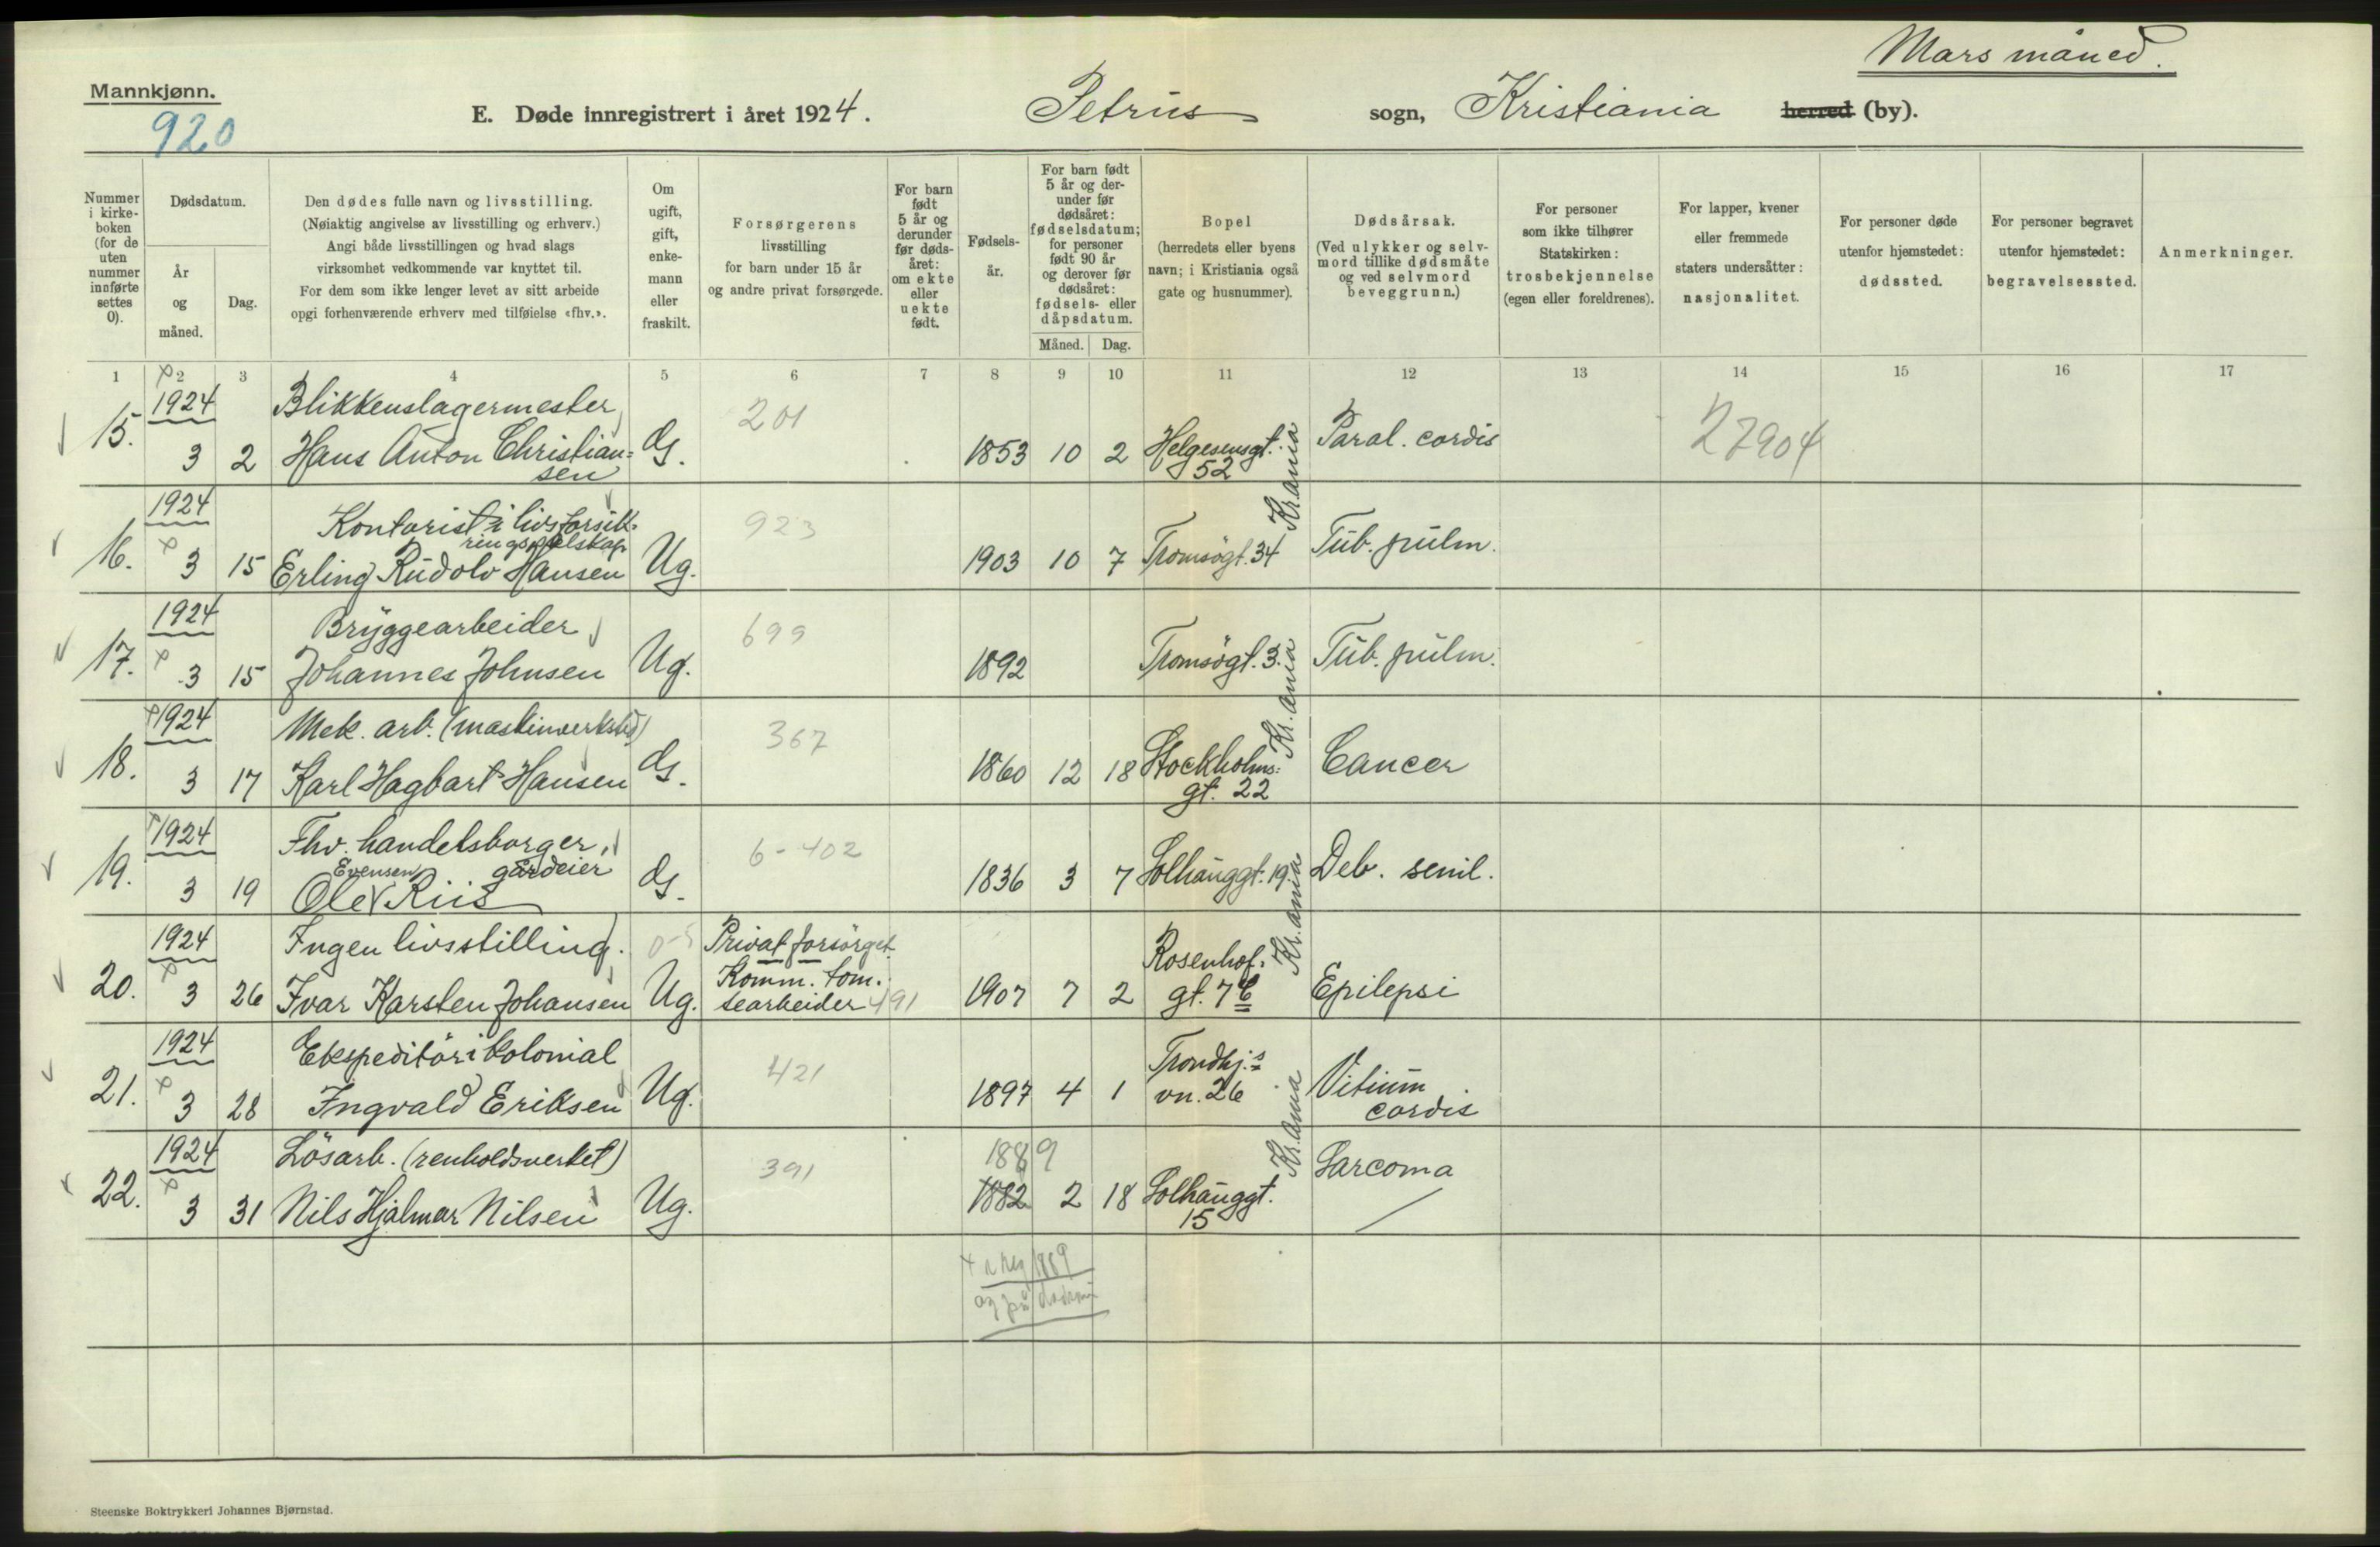 Mars måned.
Mannkjønn.
920
E. Døde innregistrert i året 1924. Petrus sogn, Kristiania herred (by).
Nummer i kirkeboken (for de uten nummer innførte settes 0).
Dødsdatum.
År og måned.
Dag.
Den dødes fulle navn og livsstilling.
(Nøiaktig angivelse av livsstilling og erhverv.)
Angi både livsstillingen og hvad slags
virksomhet vedkommende var knyttet til.
For dem som ikke lenger levet av sitt arbeide
opgi forhenværende erhverv med tilføielse «fhv.».
Om ugift, gift, enkemann eller fraskilt.
Forsørgerens
livsstilling
for barn under 15 år
og andre privat forsørgede.
For barn født 5 år og derunder før dødsåret: om ekte eller uekte født.
Fødselsår.
For barn født 5 år og derunder før dødsåret: fødselsdatum; for personer født 90 år og derover før dødsåret: fødsels- eller dåpsdatum.
Måned. Dag.
Bopel
(herredets eller byens
navn; i Kristiania også
gate og husnummer).
Dødsårsak.
(Ved ulykker og selvmord tillike dødsmåte
og ved selvmord
beveggrunn.)
For personer
som ikke tilhører
Statskirken:
trosbekjennelse
(egen eller foreldrenes).
For lapper, kvener
eller fremmede
staters undersåtter:
nasjonalitet.
For personer døde
utenfor hjemstedet:
dødssted.
For personer begravet
utenfor hjemstedet:
begravelsessted.
Anmerkninger.
1 2 3 4 5 6 7 8 9 10 11 12 13 14 15 16 17
1924 Blikkenslagermester 201 27904
15. 3 2 Hans Anton Christian= G. 1853 10 2 Helgesensgt. Paral. cordis
sen 52 Kr.ania
1924 Kontorist i livsforsik= 923
ringsselskap
16. 3 15 Erling Rudolv Hansen Ug. 1903 10 7 Tromsøgt. 34 Tub. pulm.
1924 Bryggearbeider 699
17. 3 15 Johannes Johnsen Ug. 1892 Tromsøgt. 3. Tub. pulm.
Kr.ania
1924 Mek. arb. (maskinverksted) 367
18. 3 17 Karl Hagbart Hansen G. 1860 12 18 Stockholms= Cancer
gt. 22
1924 Fhv. handelsborger, 6-402
Evensen gårdeier
19. 3 19 Ole Riis G. 1836 3 7 Solhauggt. 19. Deb. senil.
Kr.ania
1924 Ingen livsstilling. 0-5 Privat forsørget. Rosenhof.
Komm. tom.
20. 3 26 Ivar Karsten Johansen Ug. tearbeider 491 1907 7 2 gt. 7 C Epilepsi
1924 Ekspeditør i kolonial 421 Trondhj.s
21. 3 28 Ingvald Eriksen Ug. 1897 4 1 vn. 26 Vitium
cordis
Kr.ania
1924 Løsarb. (renholdsverket) 391 1889 Sarcoma
22. 3 31 Nils Hjalmar Nilsen Ug. 1882 2 18 Solhauggt.
15
1889
og på
Steenske Boktrykkeri Johannes Bjørnstad.